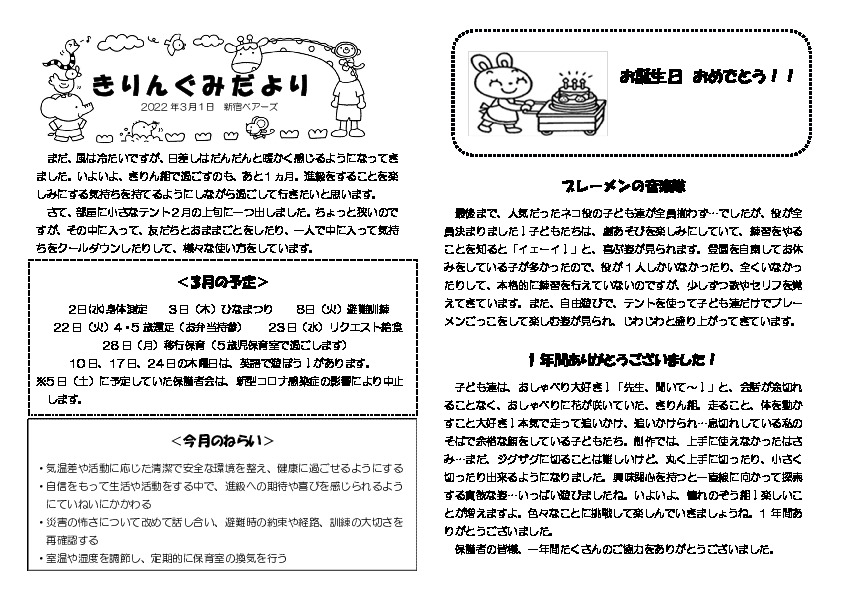 きりんぐみだより
2022年3月1日　新宿ベアーズ
まだ、風は冷たいですが、日差しはだんだんと暖かく感じるようになってき
ました。いよいよ、きりん組で過ごすのも、あと1ヵ月。進級をすることを楽
しみにする気持ちを持てるようにしながら過ごして行きたいと思います。
さて、部屋に小さなテント2月の上旬に一つ出しました。ちょっと狭いので
すが、その中に入って、友だちとおままごとをしたり、一人で中に入って気持
ちをクールダウンしたりして、様々な使い方をしています。
＜3月の予定＞
2日(水)身体測定　3日（木）ひなまつり　8日（火）避難訓練
22日（火）4・5歳遠足（お弁当持参）　23日（水）リクエスト給食
28日（月）移行保育（5歳児保育室で過ごします）
10日、17日、24日の木曜日は、英語で遊ぼう！があります。
※5日（土）に予定していた保護者会は、新型コロナ感染症の影響により中止
します。
＜今月のねらい＞
・気温差や活動に応じた清潔で安全な環境を整え、健康に過ごせるようにする
・自信をもって生活や活動をする中で、進級への期待や喜びを感じられるよう
にていねいにかかわる
・災害の怖さについて改めて話し合い、避難時の約束や経路、訓練の大切さを
再確認する
・室温や湿度を調節し、定期的に保育室の換気を行う
お誕生日 おめでとう！！
ブレーメンの音楽隊
最後まで、人気だったネコ役の子ども達が全員揃わず…でしたが、役が全
員決まりました！子どもたちは、劇あそびを楽しみにしていて、練習をやる
ことを知ると「イェーイ！」と、喜ぶ姿が見られます。登園を自粛してお休
みをしている子が多かったので、役が1人しかいなかったり、全くいなかっ
たりして、本格的に練習を行えていないのですが、少しずつ歌やセリフを覚
えてきています。また、自由遊びで、テントを使って子ども達だけでブレー
メンごっこをして楽しむ姿が見られ、じわじわと盛り上がってきています。
1年間ありがとうございました！
子ども達は、おしゃべり大好き！「先生、聞いて～！」と、会話が途切れ
ることなく、おしゃべりに花が咲いていた、きりん組。走ること、体を動か
すこと大好き！本気で走って追いかけ、追いかけられ…息切れしている私の
そばで余裕な顔をしている子どもたち。制作では、上手に使えなかったはさ
み…まだ、ジグザグに切ることは難しいけど、丸く上手に切ったり、小さく
切ったり出来るようになりました。興味関心を持つと一直線に向かって探索
する真剣な姿…いっぱい遊びましたね。いよいよ、憧れのぞう組！楽しいこ
とが増えますよ。色々なことに挑戦して楽しんでいきましょうね。1年間あ
りがとうございました。
保護者の皆様、一年間たくさんのご協力をありがとうございました。